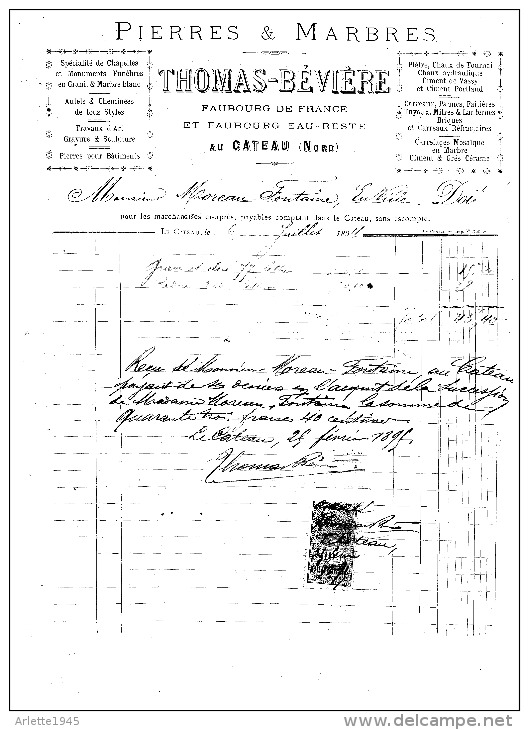 PIERRES & MARBRES
Spécialité de Chapelles
et Monuments Funèbres
en Granit & Marbre blanc
Autels & Cheminées
de tous Styles
Travaux d'Art
Gravure & Sculpture
Pierres pour Bâtiments
THOMAS-BÉVIÈRE
FAUBOURG DE FRANCE
ET FAUBOURG EAU-RESTE
AU CATEAU (NORD)
Plâtre, Chaux de Tournai
Chaux hydraulique
Ciment de Vassy
et Ciment Portland
Carreaux, Pannes, Faîtières
Tuyaux, Mitres & Lanternes
Briques
et Carreaux Réfractaires
Carrelages Mosaïque
en Marbre
Ciment & Grès Cérame
Monsieur Moreau Fontaine, En Ville Doit
pour les marchandises ci-après, payables comptant dans le Cateau, sans escompte.
LE CATEAU, le 6 juillet 1894
Reçu de Monsieur Moreau-Fontaine au Cateau
de Madame Moreau-Fontaine la somme de
quarante trois francs 40 centimes
Le Cateau, 25 février 1895
Thomas Bé
Cateau,
Arlette1945
delcampe.net